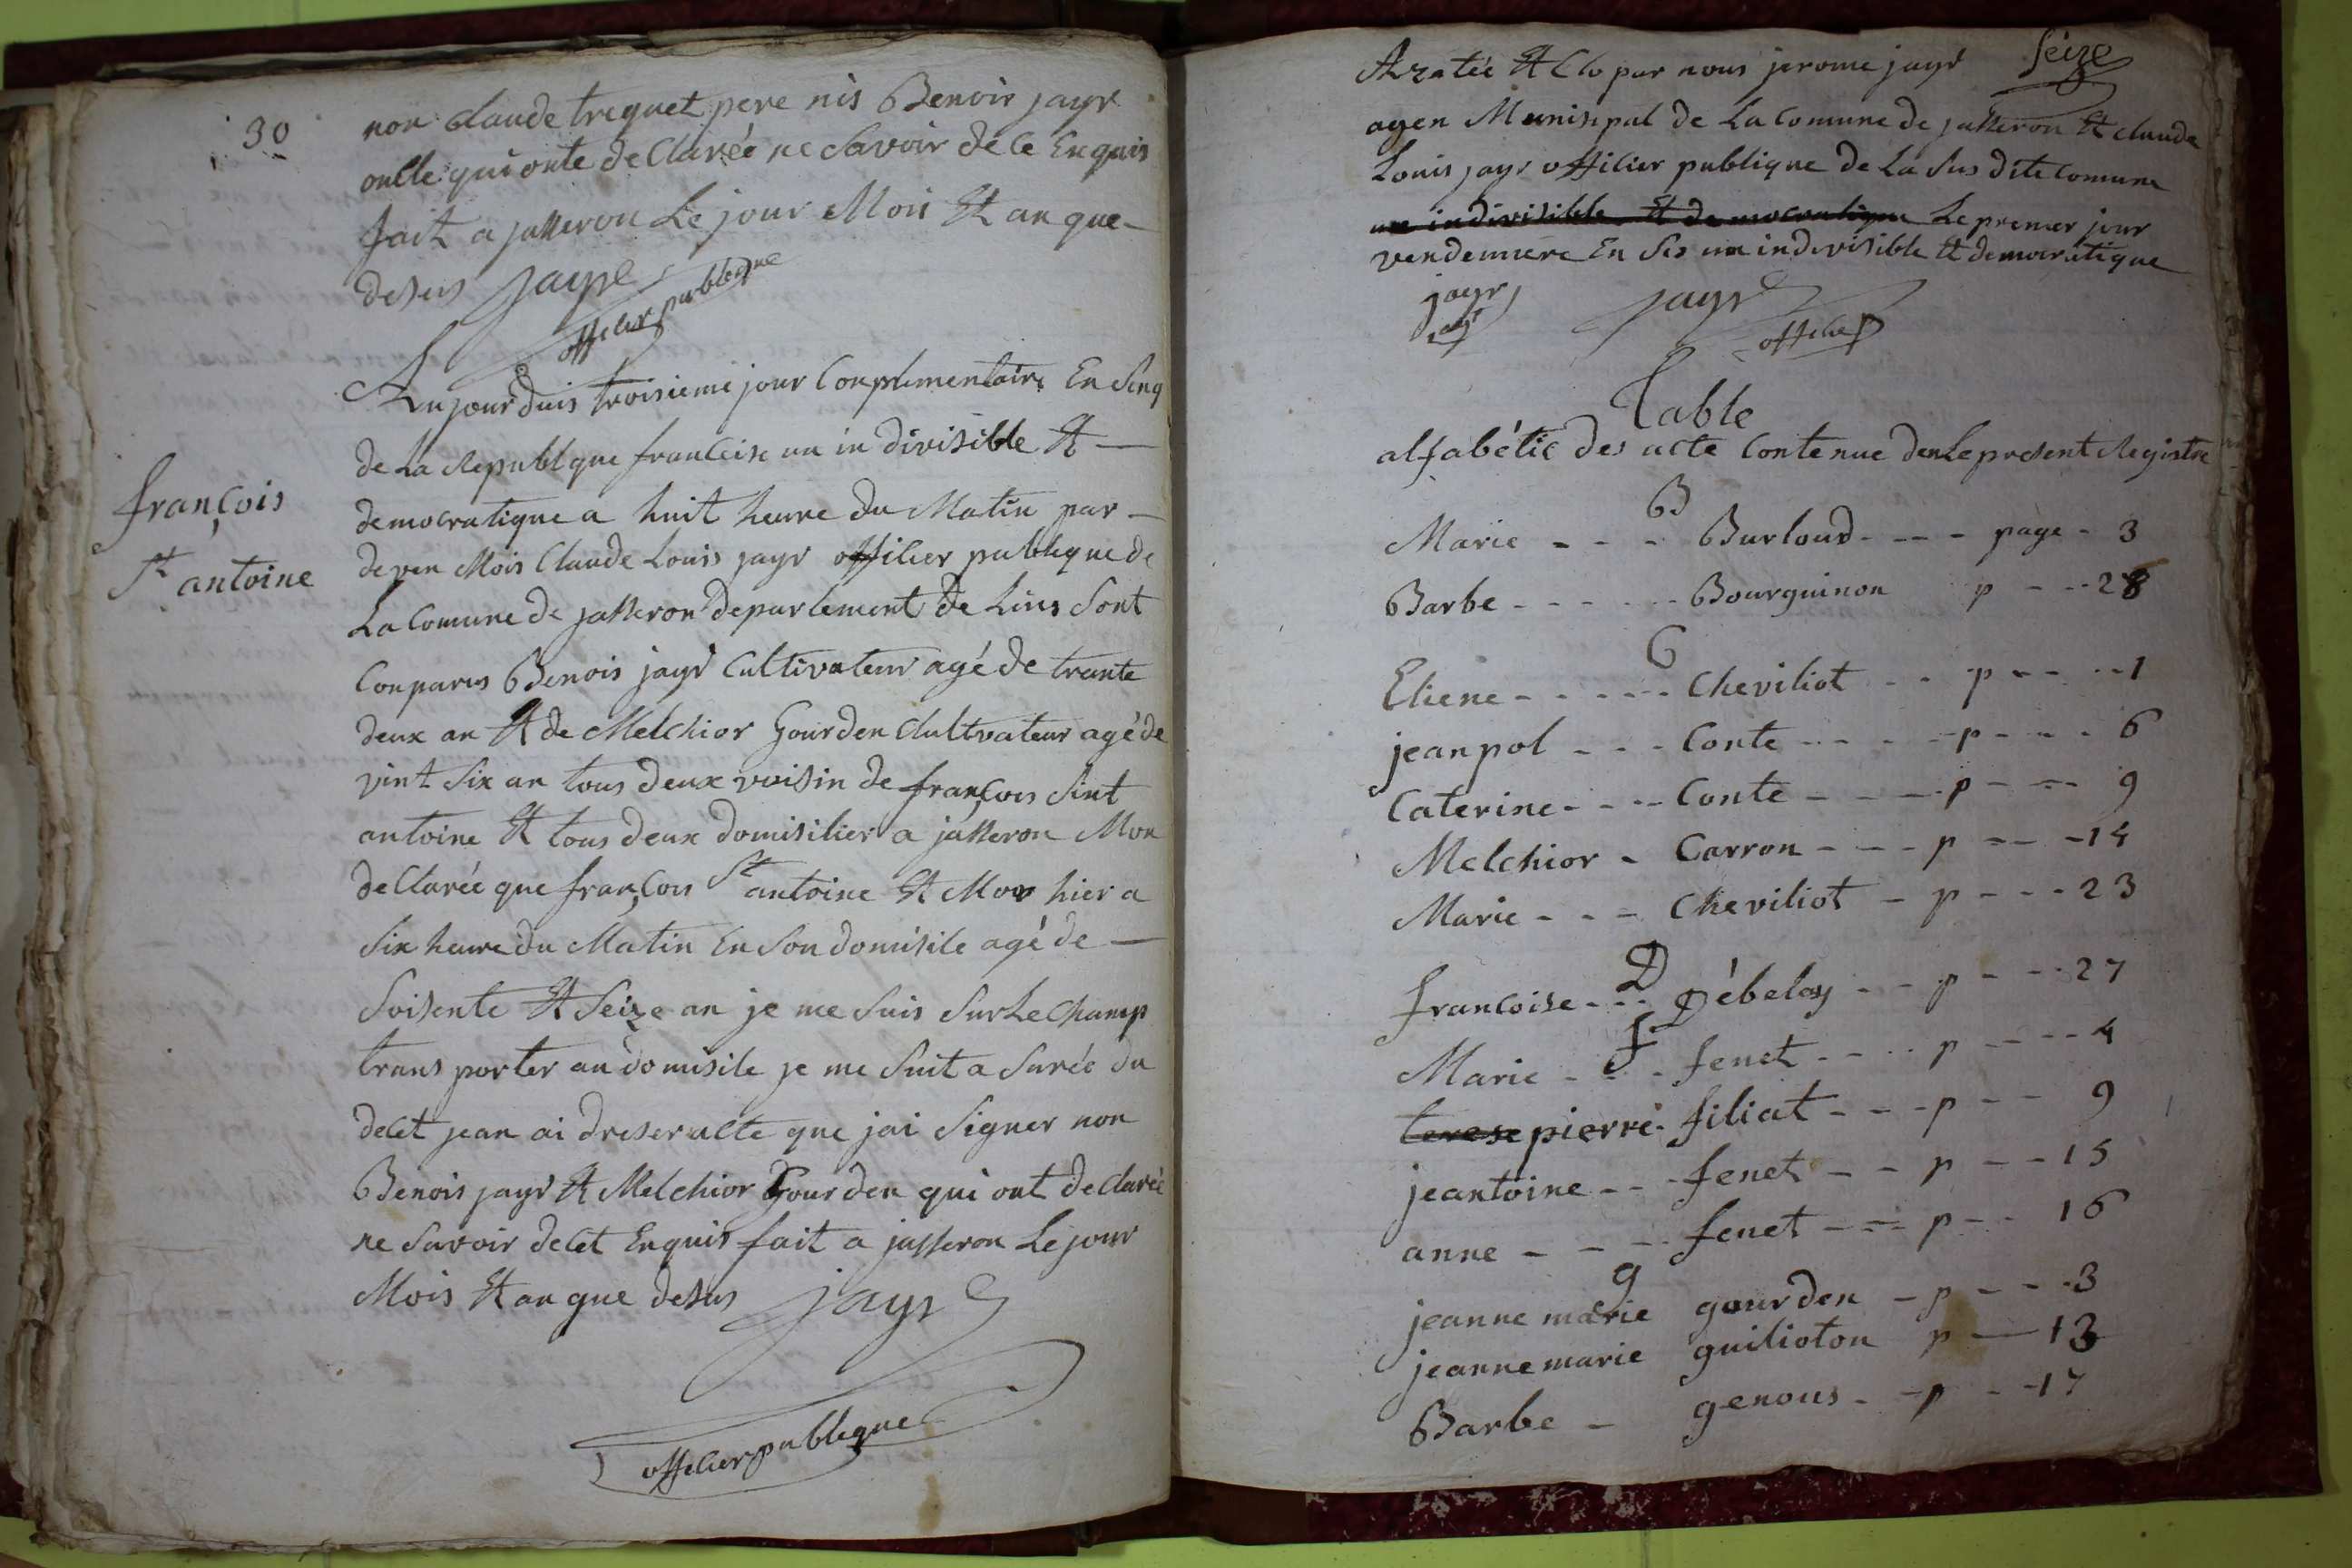 30
non claude treguet pere nis Benoir jayr
onlle qui onte de Clarée ne Savoir de Ce Enquis
fait a jasseron Le jour Mois Et an que
desus jayr
offilier publieque
Aujourduis troisieme jour Conplimentaire En Sinq
de La Republque francise un in divisible Et
democratique a huit heure du Matin par
deven Mois Claude Louis jayr offilier publique de
La Comune de jasseron departement de Lins Sont
Conparus Benois jayr Cultivateur agé de trante
deux an Et de Melchior Gourden Cultvateur agé de
vint Six an tous deux voisin de francois Sint
antoine Et tous deux domisilier a jasseron Mon
de Clarée que francois St antoine Et Mor hier a
Six heure du Matin En Son domisile agé de
Soisente Et Seize an je me Suis Sur Le Champ
trans porter au domisile je me Suit a Surée du
decet jean ai dreser acte que jai Signer non
Benois jayr Et Melchior Gourden qui ont de Clarée
ne Savoir de Cet Enquis fait a jasseron Le jour
Mois Et an que desus jayr
offilier publieque
françois
St antoine
Seize
Aratée Et Clo par nous jerome jayr
agen Munisipal de La Comune de jasseron Et claude
Louis jayr offilier publique de La Sus dite Comune
une indivisible Et democratique Le premier jour
vendemiere En Sis un indivisible Et democratique
jayr agt jayr offilier p
Table
alfabétic des acte Contenue den Le present Registre
B
Marie - - - Burloud - - - page - 3
Barbe - - - - - Bourguinon p - - 28
C
Etiene - - - - - Cheviliot - - p - - - 1
jean pol - - - Conte - - - - p - - - 6
Caterine - - - Conte - - - p - - - 9
Melchior - Carron - - - p - - - 14
Marie - - - Cheviliot - p - - - 23
D
francoise - - - Débeley - - p - - - 27
F
Marie - - - fenet - - - p - - - 4
terese pierre - filiat - - - p - - 9
jeantoine - - - fenet - - p - - 15
anne - - - - fenet - - - p - - 16
g
jeanne marie gourden - p - - - 3
jeanne marie guilioton p - 13
Barbe - genous - - p - - 17